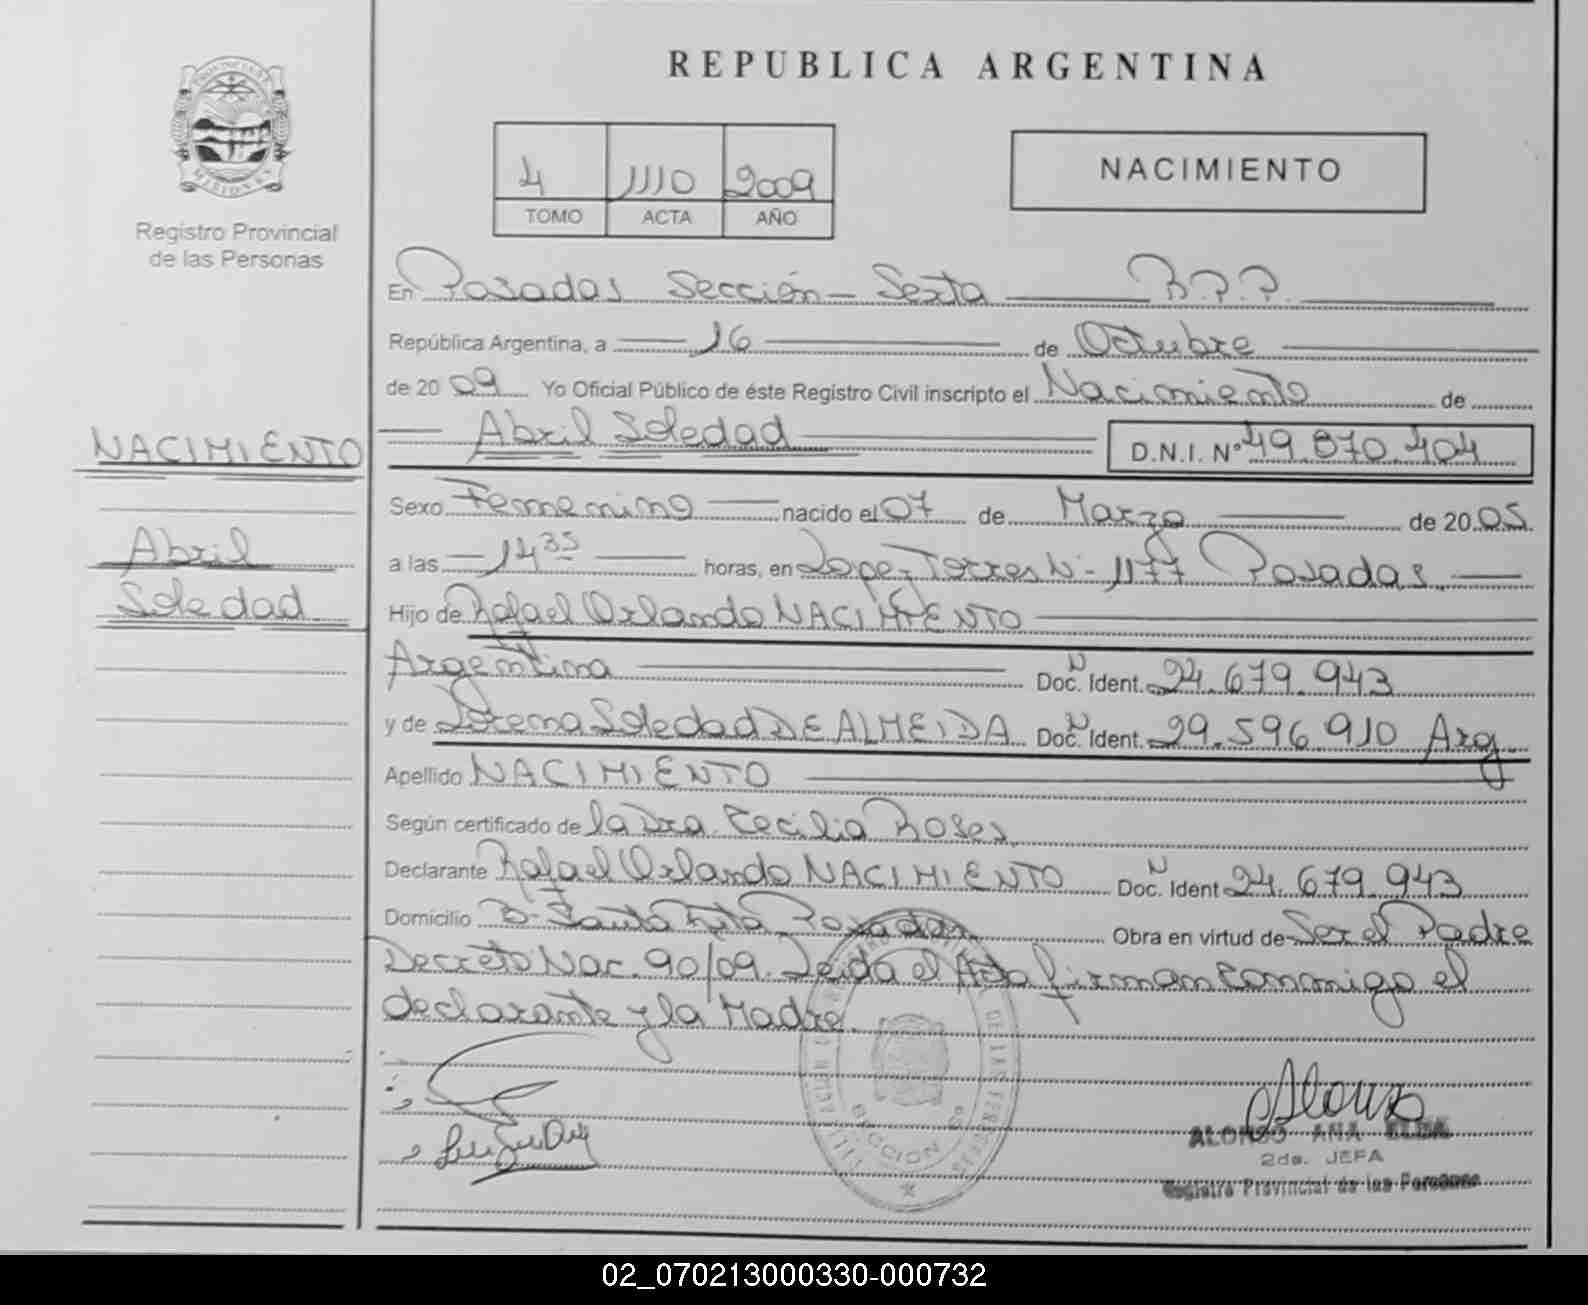 REPUBLICA ARGENTINA
PROVINCIA DE
MISIONES
Registro Provincial
de las Personas
4 1110 2009
TOMO ACTA AÑO
NACIMIENTO
En Posadas Sección - Sexta R.P.P.
República Argentina, a 16 de Octubre
de 2009 Yo Oficial Público de éste Registro Civil inscripto el Nacimiento de
Abril Soledad D.N.I. Nº 49.870.404
NACIMIENTO
Abril
Soledad
Sexo Femenino nacido el 07 de Marzo de 2005
a las 14 35 horas, en Lopez Torres Nº 1177 Posadas
Hijo de Rafael Orlando NACIMIENTO
Argentina Doc. Ident. Nº 24.679.943
y de Lorena Soledad DE ALMEIDA Doc. Ident. Nº 29.596.910 Arg.
Apellido NACIMIENTO
Según certificado de la Dra. Cecilia Roses
Declarante Rafael Orlando NACIMIENTO Doc. Ident Nº 24.679.943
Domicilio Bº Santa Rita Posadas Obra en virtud de Ser el Padre
Decreto Nac. 90/09. Leida el Acta firman conmigo el
declarante y la Madre.
SECCION 6º
ALONSO ANA ELBA
2da. JEFA
Registro Provincial de las Personas
02_070213000330-000732